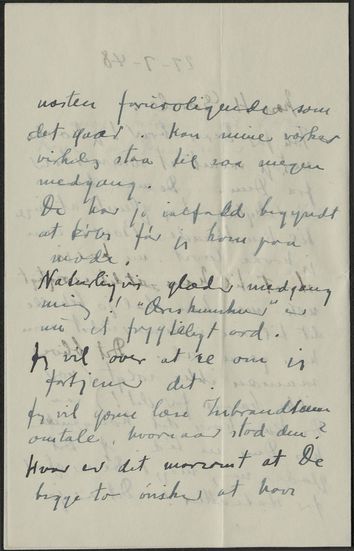 næsten foruroligende som
det gaar. Kan mine værker
virkelig staa til saa megen
medgang.
De har jo ialfald begyndt
at købe før jeg kom paa
mode.
Naturligvis glæder medgang
mig! "
nu et frygteligt ord.
Jeg vil over at se om jeg
fortjener det.
Jeg vil gerne læse
omtale, hvornaar stod den?
Hvor er det morsomt at De
begge to ønsker at have